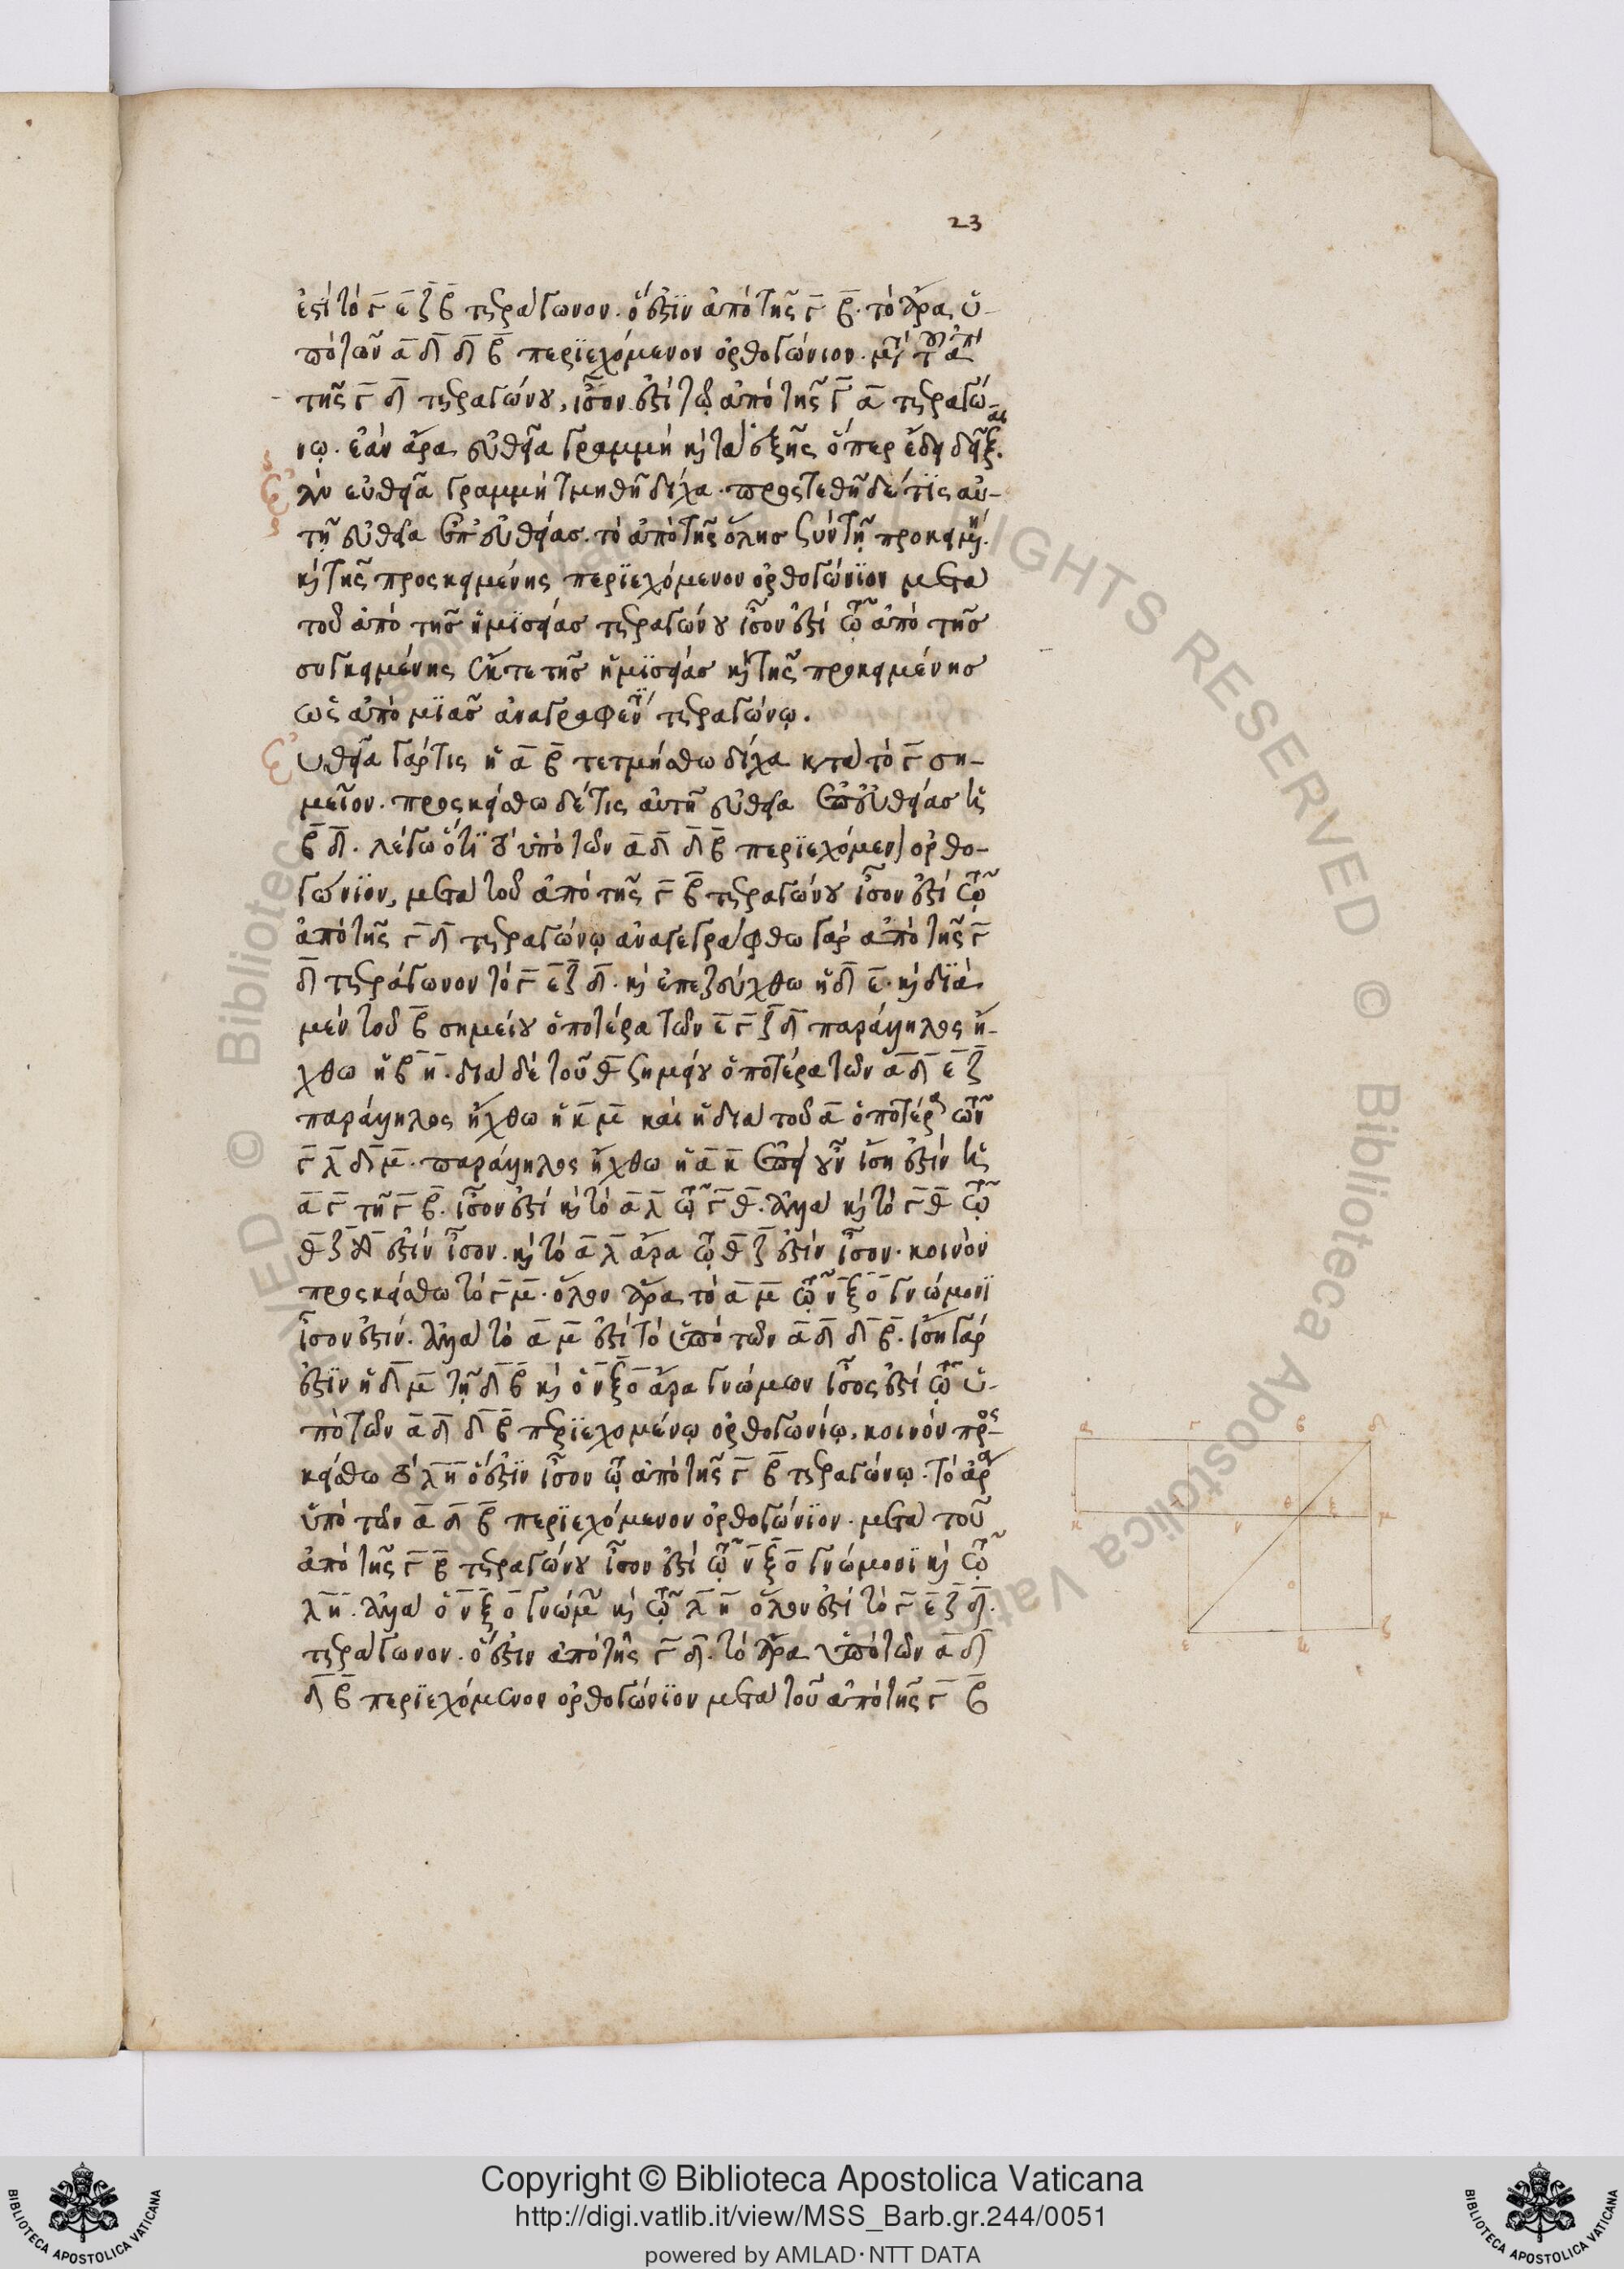 23
ἐστὶ τὸ γ ε ζ β τετράγωνον. ὅ ἐστϊν ἀπὸ τῆς γ β. τὸ ἄρα ὑ-
πὸ τῶν α δ δ β περϊεχόμενον ὀρθογώνιον. μετὰ τοῦ ἀπὸ
τῆς γ δ τετραγώνου, ἴσον ἐστὶ τῷ ἀπὸ τῆς γ α τετραγώ-
νῳ. ἐὰν ἄρα εὐθεῖα γραμμὴ καὶ τὰ ἑξῆς ὅπερ ἔδει δεῖξαι.
ὰν εὐθεῖα γραμμὴ τμηθῆ δίχα. προςτεθῆ δέ τϊς αὐ-
τῇ εὐθεῖα ἐπ' εὐθείας. τὸ ἀπὸ τῆς ὅλης σὺν τῇ προκειμένῃ.
καὶ τῆς προςκειμένης περϊεχόμενον ὀρθογώνϊον μετὰ
τοῦ ἀπὸ τῆς ἡμϊσείας τετραγώνου ἴσον ἐστὶ τῷ ἀπὸ τῆς
συγκειμένης ἔκ τε τῆς ἡμϊσείας καὶ τῆς προκειμένης
ὡς ἀπὸ μϊᾶς ἀναγραφέντϊ τετραγώνῳ.
Εὐθεῖα γάρ τις ἡ α β τετμήσθω δίχα κατὰ τὸ γ ση-
μεῖον. προςκείσθω δέ τις αὐτῇ εὐθεῖα ἐπ' εὐθείας ἡ
β δ. λέγω ὅτϊ τὸ ὑπὸ τῶν α δ δ β περϊεχόμενον ὀρθο-
γώνϊον, μετὰ τοῦ ἀπὸ τῆς γ β τετραγώνου ἴσον ἐστὶ τῷ
ἀπὸ τῆς γ δ τετραγώνῳ ἀναγεγράφθω γὰρ ἀπὸ τῆς γ
δ τετράγωνον τὸ γ ε ζ δ. καὶ ἐπεζεύχθω ἡ δ ε. καὶ δϊὰ
μὲν τοῦ β σημείου ὁποτέρα τῶν ε γ ζ δ παράλληλος ἤ-
χθω ἡ β η. διὰ δὲ τοῦ θ σημείου ὁποτέρα τῶν α δ ε ζ
παράλληλος ἤχθω ἡ κ μ καὶ ἡ διὰ τοῦ α ὁποτέρα τῶν
γ λ δ μ. παράλληλος ἤχθω ἡ α κ ἐπεὶ οὖν ἴση ἐστὶν ἡ
α γ τῇ γ β. ἴσον ἐστὶ καὶ τὸ α λ τῷ γ θ. ἀλλὰ καὶ τὸ γ θ τῷ
θ ζ ἐστὶν ἴσον. καὶ τὸ α λ ἄρα τῷ θ ζ ἐστὶν ἴσον. κοινὸν
προςκείσθω τὸ γ μ. ὅλον ἄρα τὸ α μ τῷ ν ξ ο γνώμονϊ
ἴσον ἐστίν. ἀλλὰ τὸ α μ ἐστὶ τὸ ὑπὸ τῶν α δ δ β. ἴση γάρ
ἐστϊν ἡ δ μ τῇ δ β καὶ ὁ ν ξ ο ἄρα γνώμων ἴσος ἐστὶ τῷ ὑ-
πὸ τῶν α δ δ β περϊεχομένῳ ὀρθογωνίῳ. κοινὸν προς-
κείσθω τὸ λ η ὅ ἐστϊν ἴσον τῷ ἀπὸ τῆς γ β τετραγώνῳ. τὸ ἄρα
ὑπὸ τῶν α δ β περϊεχόμενον ὀρθογώνϊον. μετὰ τοῦ
ἀπὸ τῆς γ β τετραγώνου ἴσον ἐστὶ τῷ ν ξ ο γνώμονϊ καὶ τῷ
λ η. ἀλλὰ ὁ ν ξ ο γνώμων καὶ τῷ λ η ὅλον ἐστὶ τὸ γ ε ζ δ.
τετράγωνον. ὅ ἐστιν ἀπὸ τῆς γ δ. τὸ ἄρα ὑπὸ τῶν α δ
δ β περϊεχόμενον ὀρθογώνϊον μετὰ τοῦ ἀπὸ τῆς γ β
α γ β δ
κ ν θ ξ μ
ο
ε η ζ
Copyright © Biblioteca Apostolica Vaticana
http://digi.vatlib.it/view/MSS_Barb.gr.244/0051
powered by AMLAD·NTT DATA